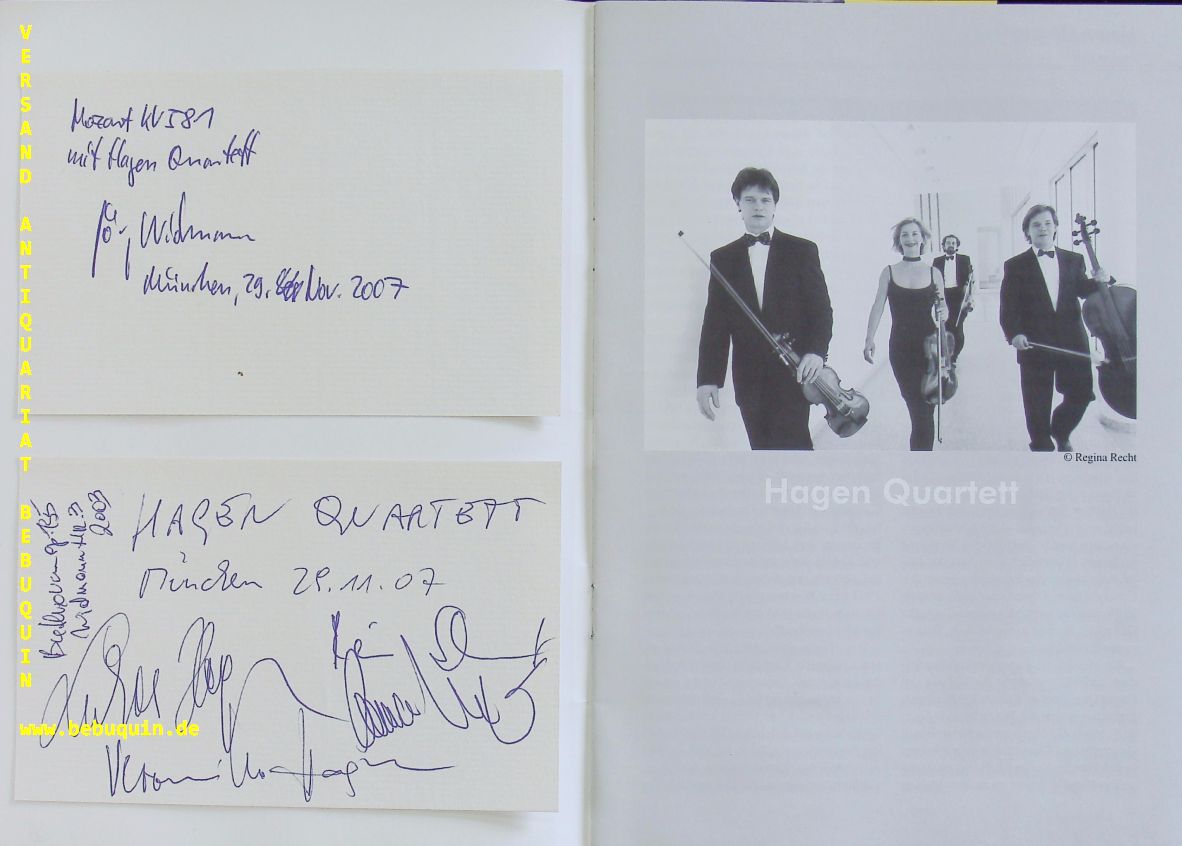 VERSAND ANTIQUARIAT BEBUQUIN
Mozart KV 581
mit Hagen Quartett
Jörg Widmann
München, 29. Nov. 2007
Beethoven op. 135
Widmann Nr. 3
2003
HAGEN QUARTETT
München 29.11.07
Lukas Hagen
Rainer Schmidt
Clemens Hagen
Veronika Hagen
www.bebuquin.de
© Regina Recht
Hagen Quartett